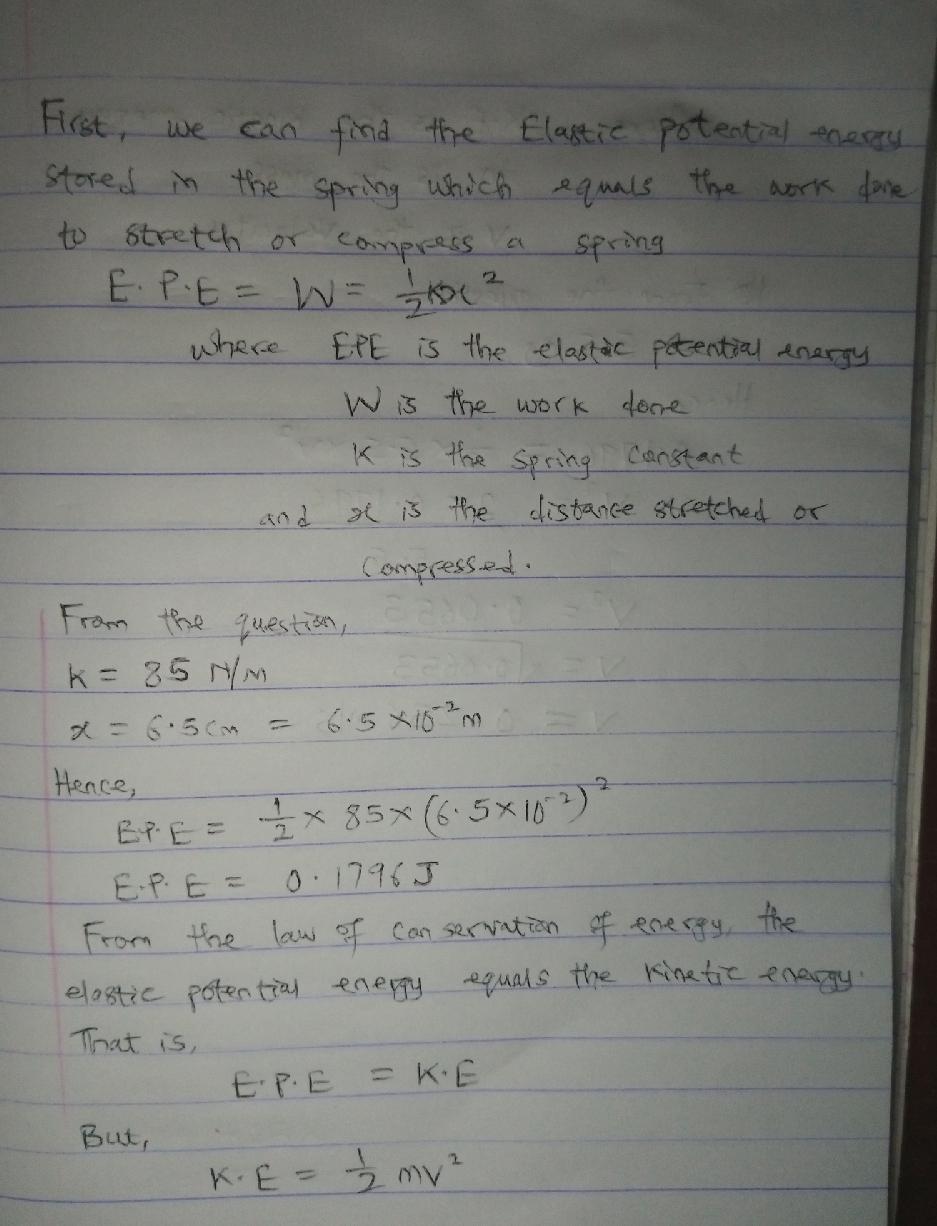 First, we can find the Elastic potential energy
stored in the spring which equals the work done
to stretch or compress a spring
E.P.E = W = 1/2 Kx²
where E.P.E is the elastic potential energy
W is the work done
K is the spring constant
and x is the distance stretched or
compressed.
From the question,
K = 85 N/m
x = 6.5cm = 6.5 ×10⁻² m
Hence,
E.P.E = 1/2 × 85 × (6.5×10⁻²)²
E.P.E = 0.1796 J
From the law of conservation of energy, the
elastic potential energy equals the kinetic energy.
That is,
E.P.E = K.E
But,
K.E = 1/2 mv²